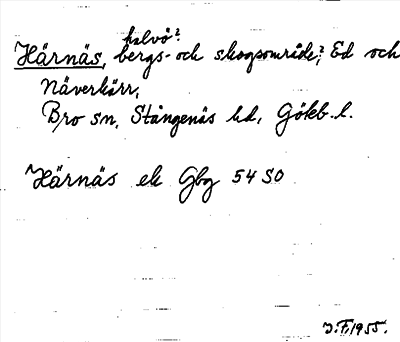 halvö?
Härnäs, bergs- och skogsområde?, Ed och
Näverkärr,
Bro sn, Stångenäs hd, Göteb. l.
Härnäs ek Gbg 54 SO
J.F. 1955.